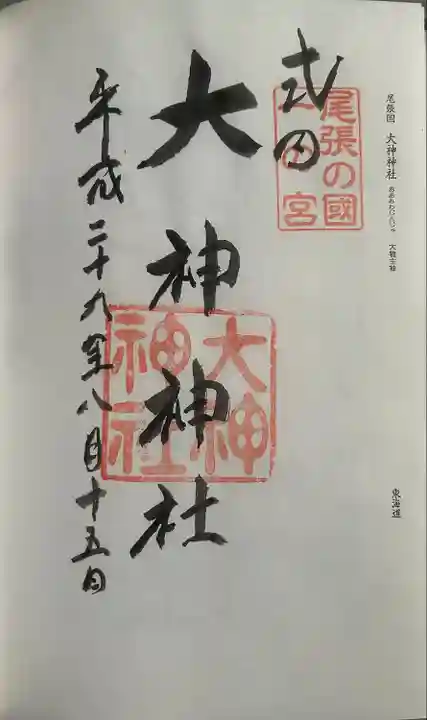 尾張国 大神神社 おおみわじんじゃ 大物主神
東海道
尾張の國
一宮
式内
大神神社
大神
神社
平成二十九年八月十五日